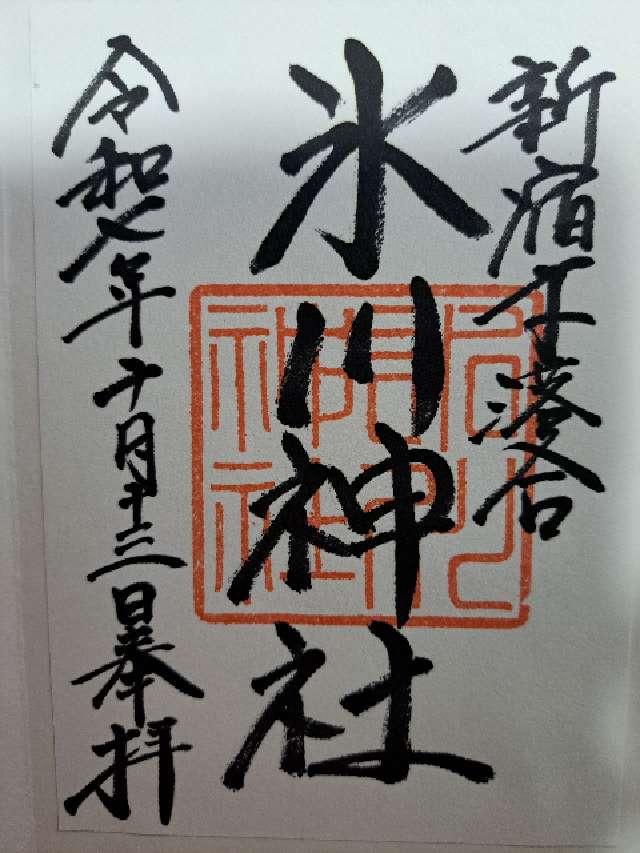 新宿下落合
氷川神社
令和七年十月十三日奉拝